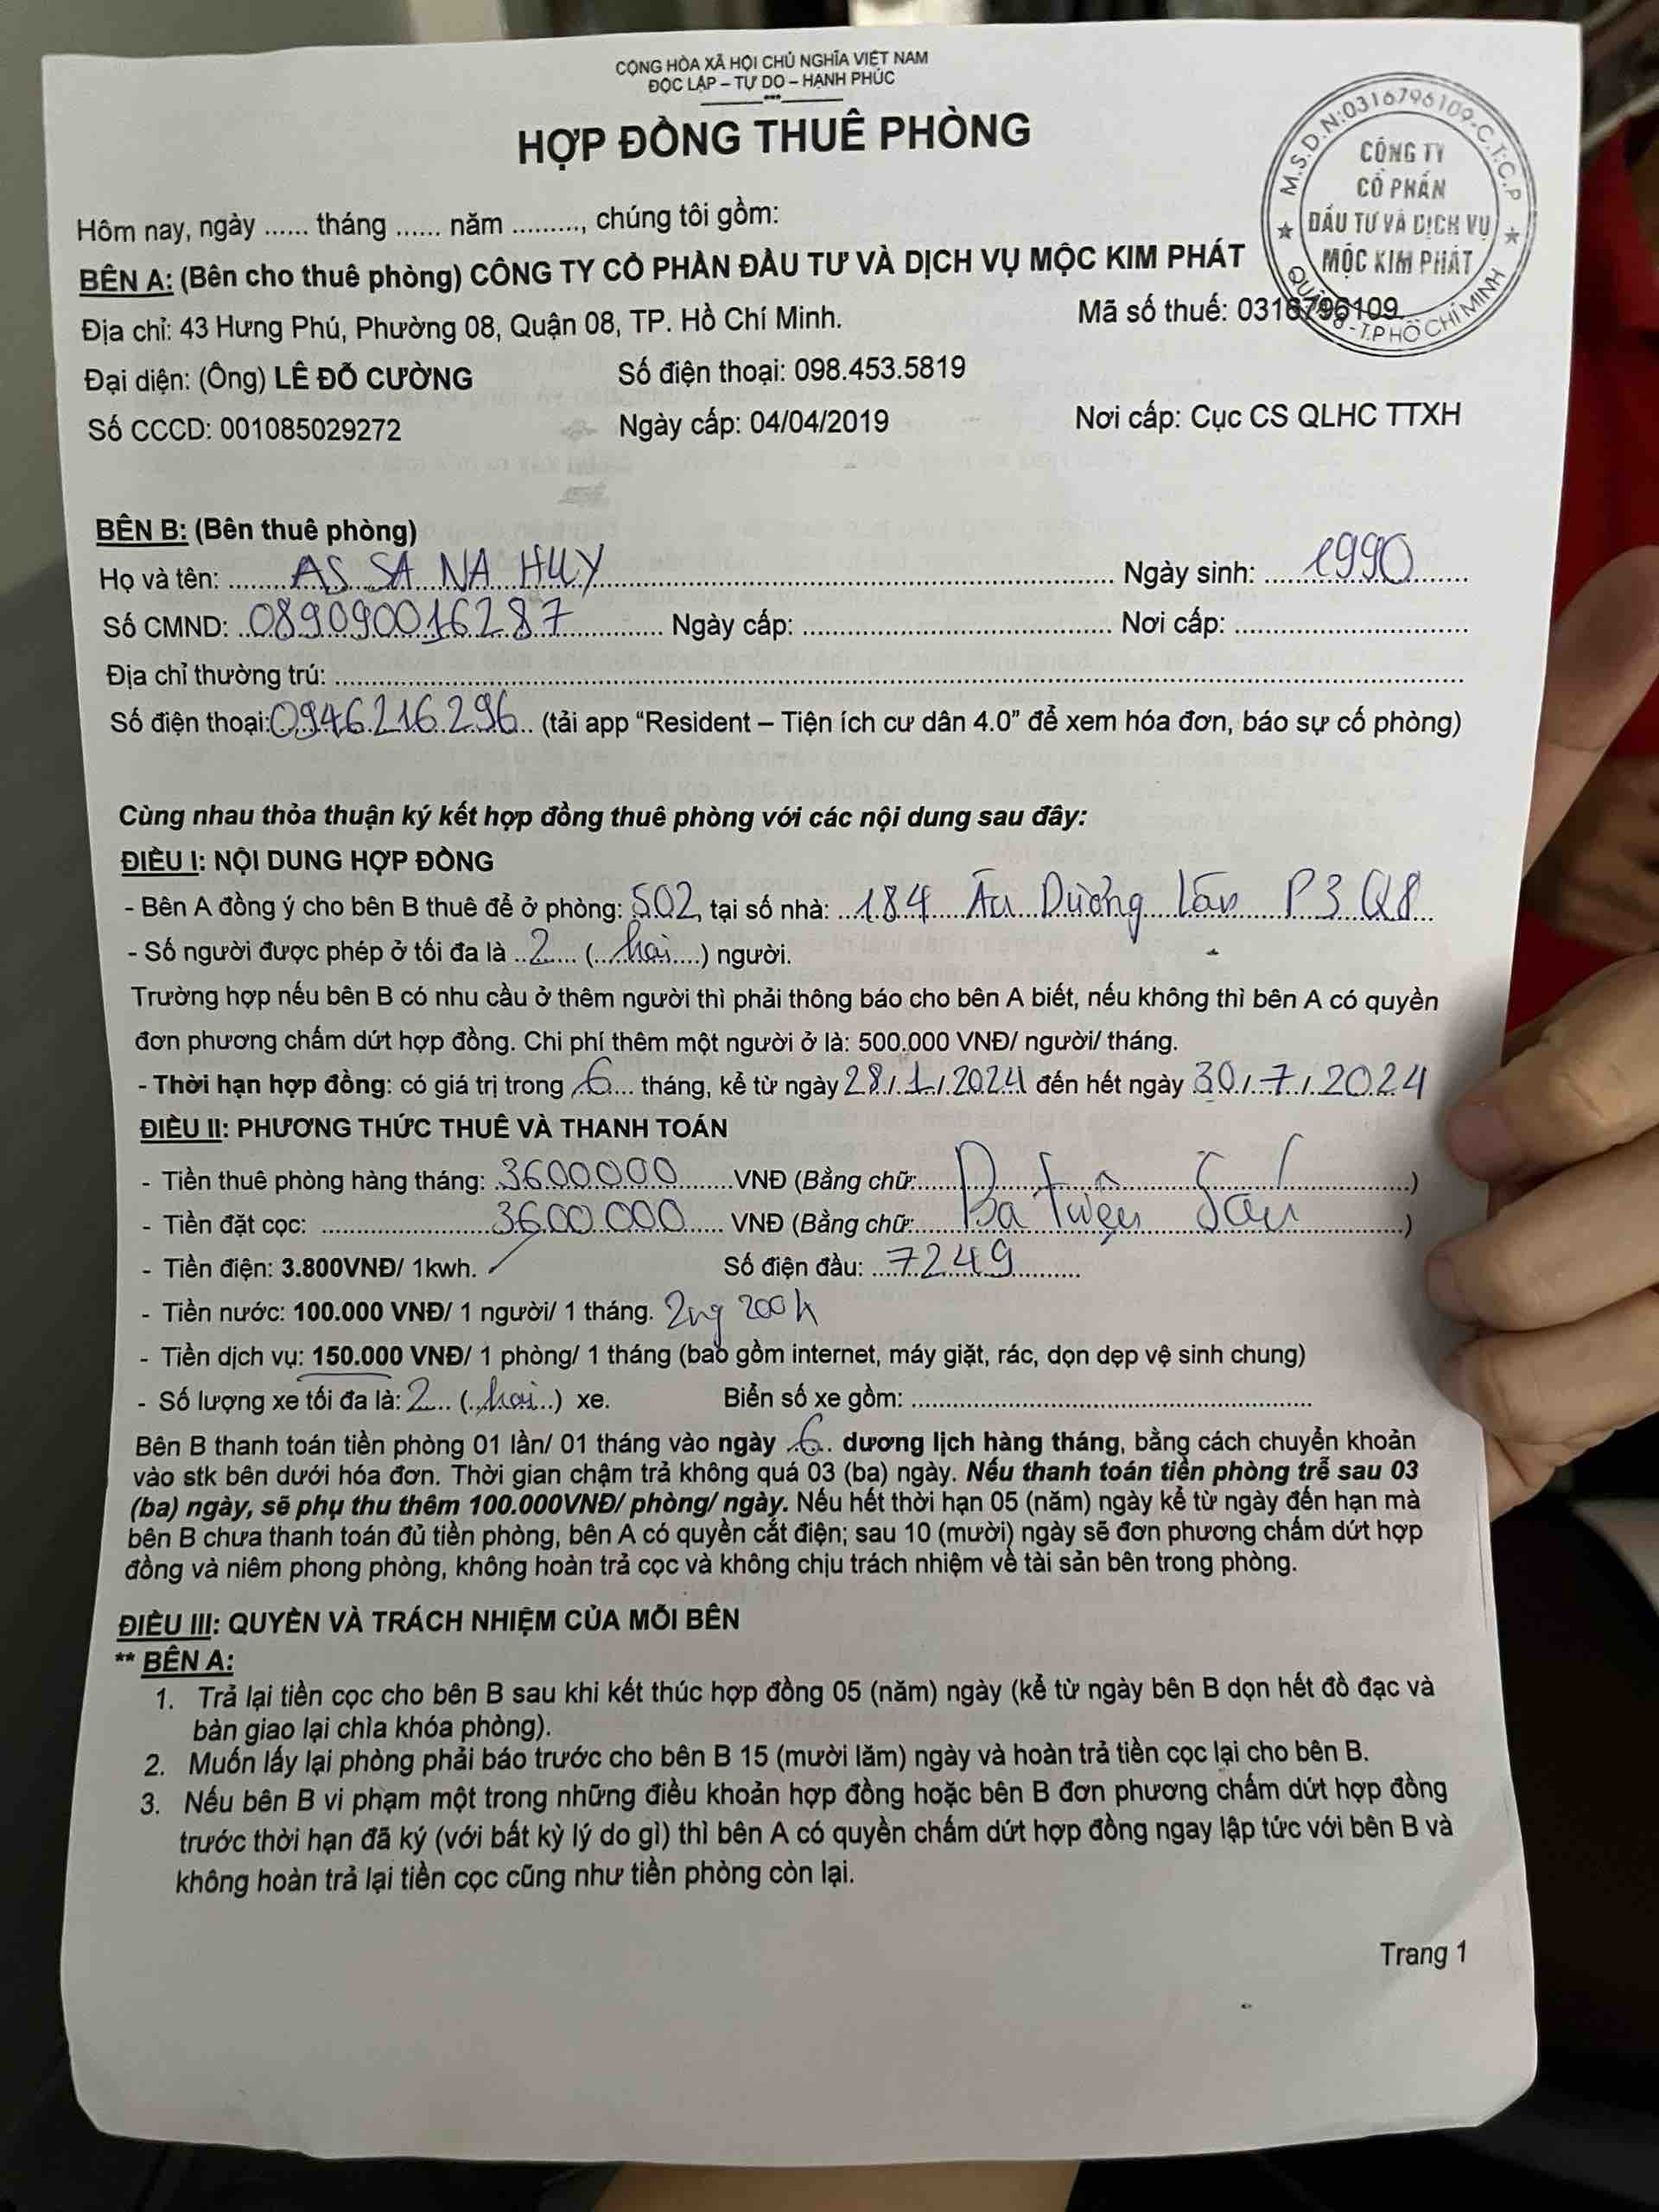 CỘNG HÒA XÃ HỘI CHỦ NGHĨA VIỆT NAM
ĐỘC LẬP – TỰ DO – HẠNH PHÚC
HỢP ĐỒNG THUÊ PHÒNG
M.S.D.N:0316796109-C.T.C.P
CÔNG TY
CỔ PHẦN
ĐẦU TƯ VÀ DỊCH VỤ
MỘC KIM PHÁT
QUẬN 8 - T.P HỒ CHÍ MINH
Hôm nay, ngày ...... tháng ...... năm ........., chúng tôi gồm:
BÊN A: (Bên cho thuê phòng) CÔNG TY CỔ PHẦN ĐẦU TƯ VÀ DỊCH VỤ MỘC KIM PHÁT
Địa chỉ: 43 Hưng Phú, Phường 08, Quận 08, TP. Hồ Chí Minh. Mã số thuế: 0316796109
Đại diện: (Ông) LÊ ĐỖ CƯỜNG Số điện thoại: 098.453.5819
Số CCCD: 001085029272 Ngày cấp: 04/04/2019 Nơi cấp: Cục CS QLHC TTXH
BÊN B: (Bên thuê phòng)
Họ và tên: AS SA NA HUY Ngày sinh: 1990
Số CMND: 089090016287 Ngày cấp: ........ Nơi cấp: ........
Địa chỉ thường trú: ........
Số điện thoại: 0946216296 (tải app “Resident – Tiện ích cư dân 4.0” để xem hóa đơn, báo sự cố phòng)
Cùng nhau thỏa thuận ký kết hợp đồng thuê phòng với các nội dung sau đây:
ĐIỀU I: NỘI DUNG HỢP ĐỒNG
- Bên A đồng ý cho bên B thuê để ở phòng: 502, tại số nhà: 184 Âu Dương Lân P3 Q8
- Số người được phép ở tối đa là 2 (hai) người.
Trường hợp nếu bên B có nhu cầu ở thêm người thì phải thông báo cho bên A biết, nếu không thì bên A có quyền
đơn phương chấm dứt hợp đồng. Chi phí thêm một người ở là: 500.000 VNĐ/ người/ tháng.
- Thời hạn hợp đồng: có giá trị trong 6 tháng, kể từ ngày 28/1/2024 đến hết ngày 30/7/2024
ĐIỀU II: PHƯƠNG THỨC THUÊ VÀ THANH TOÁN
- Tiền thuê phòng hàng tháng: 3600000 VNĐ (Bằng chữ: ........)
- Tiền đặt cọc: 3600.000 VNĐ (Bằng chữ: Ba triệu sáu)
- Tiền điện: 3.800VNĐ/ 1kwh. Số điện đầu: 7249
- Tiền nước: 100.000 VNĐ/ 1 người/ 1 tháng. 2ng 200k
- Tiền dịch vụ: 150.000 VNĐ/ 1 phòng/ 1 tháng (bao gồm internet, máy giặt, rác, dọn dẹp vệ sinh chung)
- Số lượng xe tối đa là: 2 (hai) xe. Biển số xe gồm: ........
Bên B thanh toán tiền phòng 01 lần/ 01 tháng vào ngày 6 dương lịch hàng tháng, bằng cách chuyển khoản
vào stk bên dưới hóa đơn. Thời gian chậm trả không quá 03 (ba) ngày. Nếu thanh toán tiền phòng trễ sau 03
(ba) ngày, sẽ phụ thu thêm 100.000VNĐ/ phòng/ ngày. Nếu hết thời hạn 05 (năm) ngày kể từ ngày đến hạn mà
bên B chưa thanh toán đủ tiền phòng, bên A có quyền cắt điện; sau 10 (mười) ngày sẽ đơn phương chấm dứt hợp
đồng và niêm phong phòng, không hoàn trả cọc và không chịu trách nhiệm về tài sản bên trong phòng.
ĐIỀU III: QUYỀN VÀ TRÁCH NHIỆM CỦA MỖI BÊN
** BÊN A:
1. Trả lại tiền cọc cho bên B sau khi kết thúc hợp đồng 05 (năm) ngày (kể từ ngày bên B dọn hết đồ đạc và
bàn giao lại chìa khóa phòng).
2. Muốn lấy lại phòng phải báo trước cho bên B 15 (mười lăm) ngày và hoàn trả tiền cọc lại cho bên B.
3. Nếu bên B vi phạm một trong những điều khoản hợp đồng hoặc bên B đơn phương chấm dứt hợp đồng
trước thời hạn đã ký (với bất kỳ lý do gì) thì bên A có quyền chấm dứt hợp đồng ngay lập tức với bên B và
không hoàn trả lại tiền cọc cũng như tiền phòng còn lại.
Trang 1